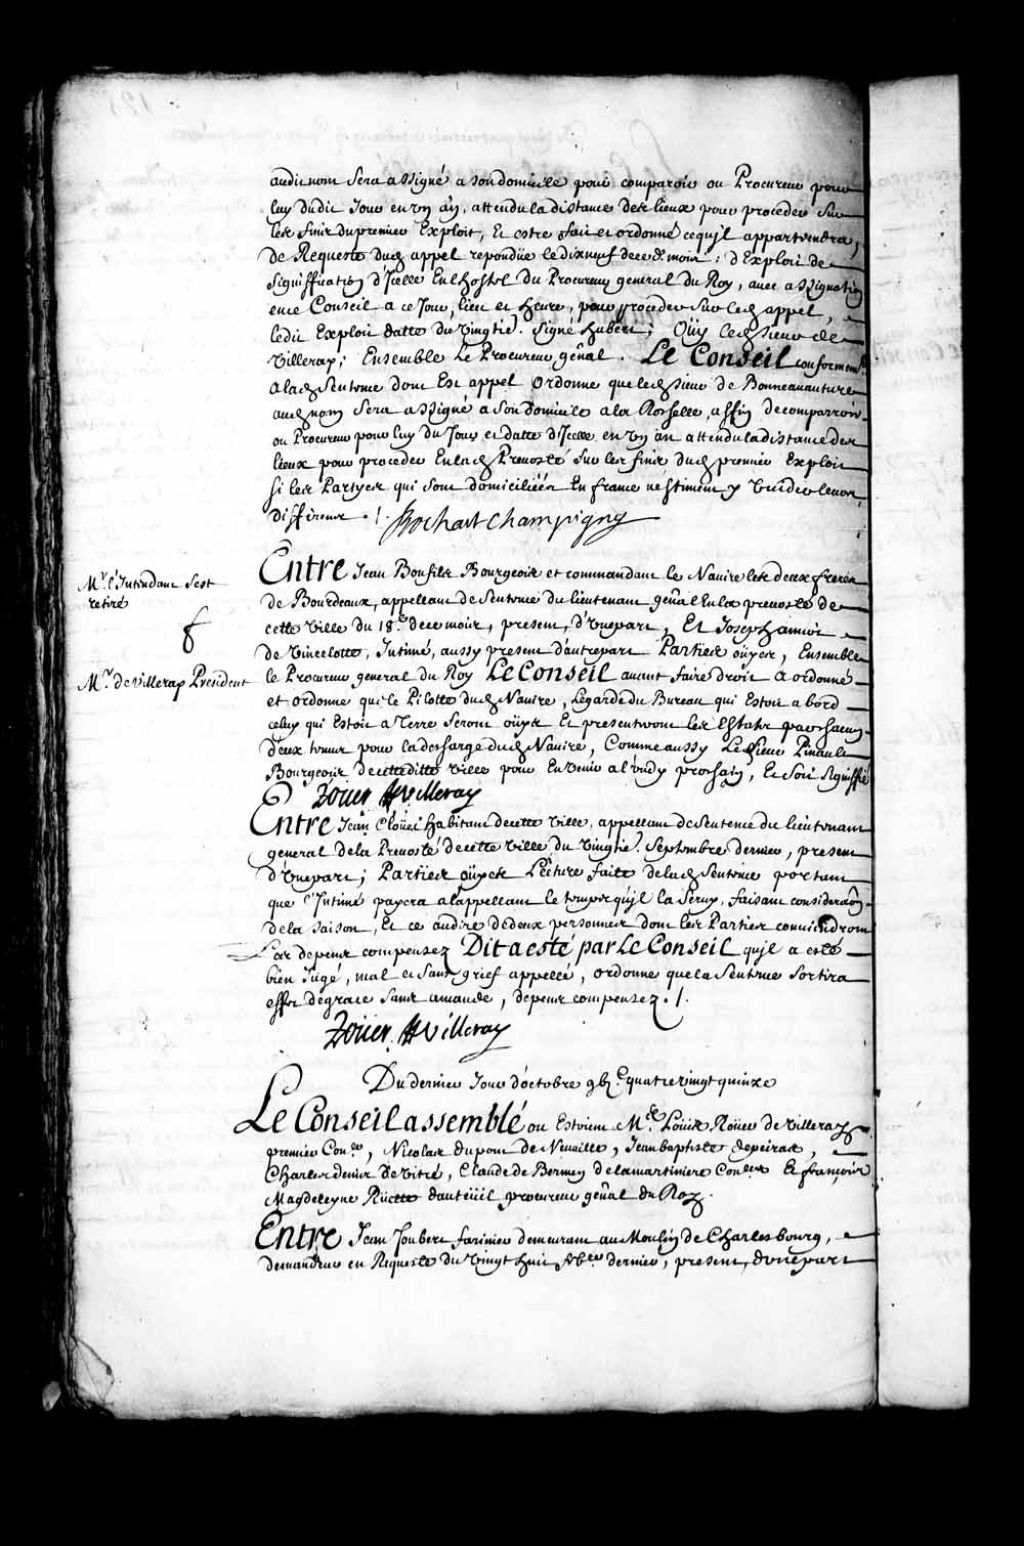 audit nom sera assigné a son domicile pour comparoir ou Procureur pour
luy dudit Jour en un an, attendu la distance des lieux pour proceder sur
les fins du premier Exploit, Et estre fait et ordonné ce qu'jl appartiendra,
de Requeste dud appel repondüe le dixneuf de ce d. mois; d'Exploit de
signiffication d'Jcelle En l'hostel du Procureur general du Roy, avec assignation
en ce Conseil a ce Jour, lieu et heure, pour proceder sur led appel,
ledit Exploit datté du vingtie. signé hubert; Oüy led sieur de
Villeray; Ensemble Le Procureur gñal. Le Conseil conformemt
a lad Sentence dont Est appel ordonne que led sieur de Bonneavanture
aud nom sera assigné a son domicile a la Rochelle, affin de comparroir
ou Procureur pour luy du Jour et datte d'Jcelle en un an attendu la distance des
lieux pour proceder En lad Prevosté sur les fins dud premier Exploit
si les Partyes qui sont domiciliées En france n'estiment y vuider leur
different ./. Bochart Champigny
Mr. l'Intendant s'est
retiré
Mr. de Villeray President
Entre Jean Bonfils Bourgeois et commandant le Navire les deux freres
de Bourdeaux, appellant de Sentence du lieutenant gñal En la prevosté de
cette ville du 18.e de ce mois, present, d'vnepart, Et Joseph amiot
de Vincelotte, Intimé, aussy present d'autrepart Parties oüyes, Ensemble
le Procureur general du Roy Le Conseil avant faire droit a ordonné
et ordonne que le Pilotte dud Navire, Le garde du Bureau qui Estoit a bord
celuy qui Estoit a Terre seront oüys Et presenteront les Estats par chacun
d'eux tenus pour la descharge dud Navire, Comme aussy Le sieur Pinault
Bourgeois de cetteditte ville pour En venir a lundy prochain, Et soit signiffié
Roüer de Villeray
Entre Jean Cloüet habitant de cette ville, appellant de Sentence du lieutenant
general de la Prevosté de cette ville du vingtie. Septembre dernier, present
d'vnepart; Parties oüyes Lecture faite de lad Sentence portant
que l'Intimé payera a l'appellant le temps qu'jl l'a servy, faisant consideraõn
de la saison, Et ce au dire de deux personnes dont les Parties conviendront
depens compensez Dit a esté par Le Conseil qu'jl a esté
bien Jugé, mal et sans grief appellé, ordonne que la Sentence sortira
effet de grace sans amande, depens compensez ./.
Roüer de Villeray
Du dernier Jour d'octobre gbj.c quatre vingt quinze
Le Conseil assemblé ou Estoient M.es Loüis Roüer de Villeray
premier Con.er, Nicolas dupont de Neuville, Jean baptiste depeiras,
Charles denis De Vitré, Claude de Bermen de la martiniere Con.ers Et françois
Magdeleyne Rüette dauteüil procureur gñal du Roy.
Entre Jean Joubert farinier demeurant au Moulin de Charlesbourg,
demandeur en Requeste du vingt huit dernier, present, d'vnepart